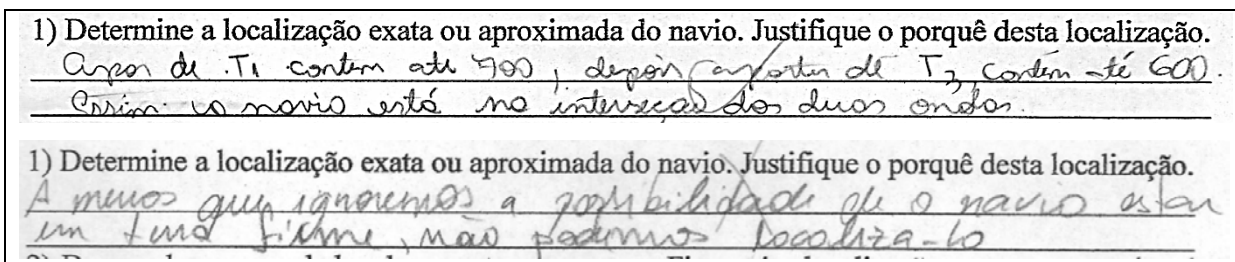 1) Determine a localização exata ou aproximada do navio. Justifique o porquê desta localização.
de T1 contem até 700, depois de T2 contém até 600.
Assim o navio está na interseção das duas ondas.
1) Determine a localização exata ou aproximada do navio. Justifique o porquê desta localização.
A menos que ignoremos a possibilidade de o navio estar
em terra firme, não podemos localiza-lo